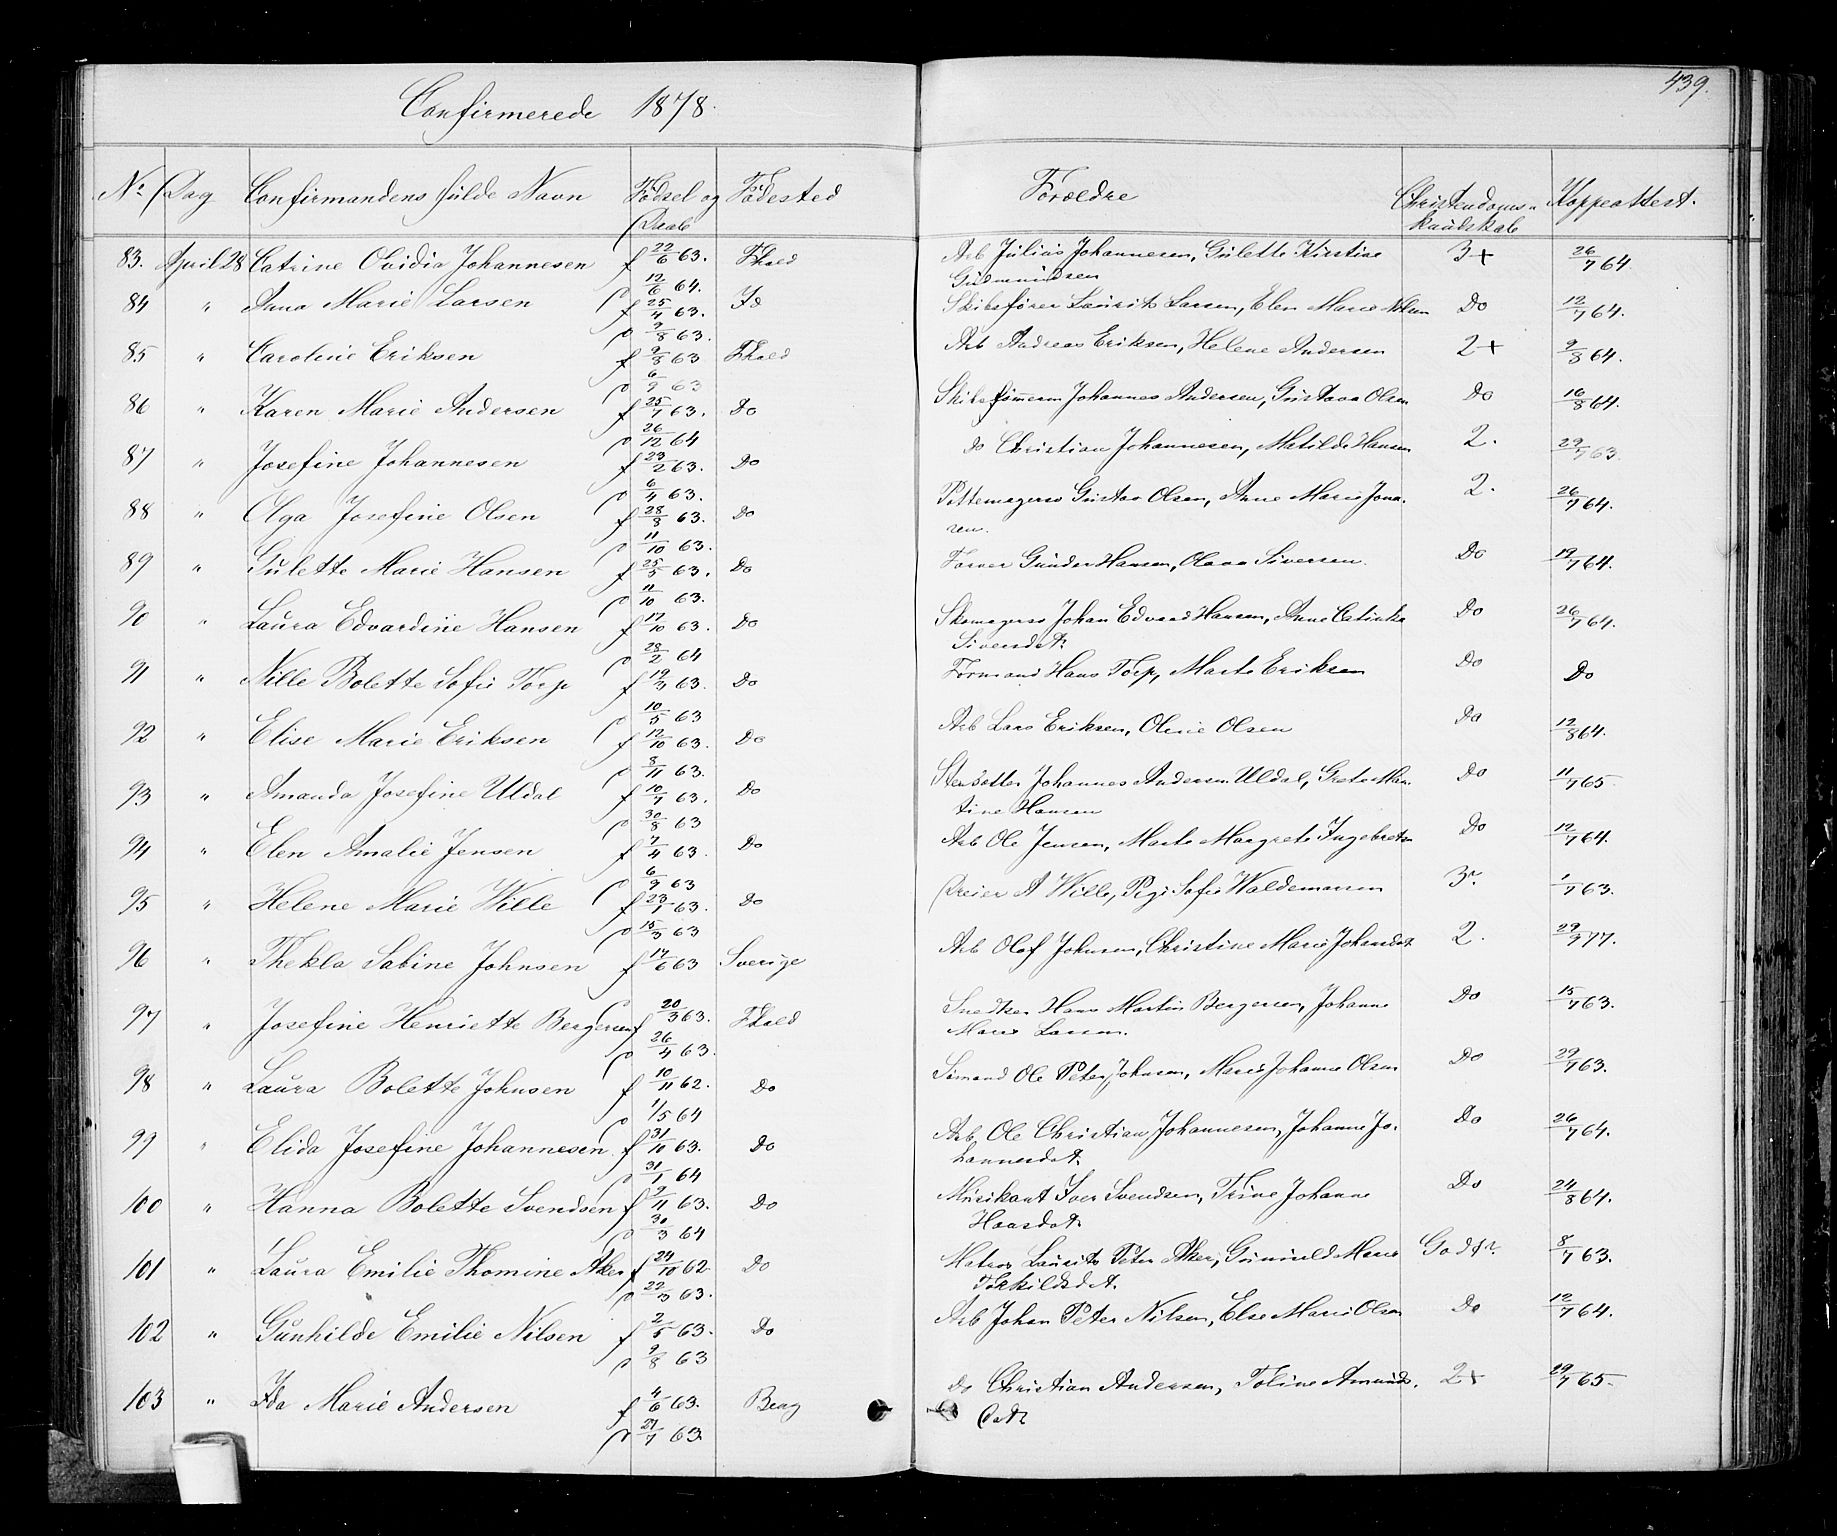 439.
Confirmerede 1878.
No Dag Confirmandens fulde Navn Fødsel og Daab Fødested Forældre Christendoms-kundskab Koppeattest.
83. April 28 Catrine Ovidia Johannesen f 22/6 63. Fhald Arb Julius Johannesen, Gulette Kirstine 3+ 26/7 64.
D 12/6 64. Gudmundsen
84 " Anna Marie Larsen f 25/4 63. Do Skibsfører Laurits Larsen, Elen Marie Do 12/7 64.
D 9/8 63.
85 " Caroline Eriksen f 9/8 63 Fhald Arb Andreas Eriksen, Helene Andersen 2+ 9/8 64.
D 6/9 63
86 " Karen Marie Andersen f 25/7 63. Do Skibstømerm Johannes Andersen, Gustava Olsen Do 16/8 64.
D 26/12 64
87 " Josefine Johannesen f 23/2 63. Do do Christian Johannesen, Matilde Hansen 2. 29/7 63
D 6/4 63.
88 " Olga Josefine Olsen f 28/8 63. Do Pottemagersv Gustav Olsen, Anne Marie Jona-
D 11/10 63. sen.
89 " Gulette Marie Hansen f 25/5 63. Do Farver Gunder Hansen, Olava Siversen. Do 19/7 64.
D 11/10 63.
90 " Laura Edvardine Hansen f 17/10 63. Do Skomagersv Johan Edvard Hansen, Anne Catinka Do 26/7 64.
D 28/2 64 Siversdt.
91 " Nille Bolette Sofie Torp f 19/3 63. Do Formand Hans Torp, Marte Eriksen Do Do
D 10/5 63
92 " Elise Marie Eriksen f 12/10 63. Do Arb Lars Eriksen, Oline Olsen Do 12/8 64.
D 8/11 63.
93 " Amanda Josefine Uldal f 10/7 63. Do Stensetter Johannes Andersen Uldal, Do 11/7 65
D 30/8 63 tine Hansen
94 " Elen Amalie Jensen f 7/4 63. Do Arb Ole Jensen, Marte Margrete Ingebretsen Do 12/7 64.
D 6/9 63
95 " Helene Marie Wille f 23/1 63. Do Dreier A Wille, Pige Sofie Waldemarsen 3. 1/7 63.
D 15/3 63
96 " Thekla Sabine Johnsen f 17/6 63 Sverige Arb Olaf Johnsen, Christine Marie Johnsdt 2. 29/9 77.
97 " Josefine Henriette Bergersen f 20/3 63. Fhald Snedker Hans Martin Bergersen, Johanne Do 15/7 63.
D 26/4 63. Marie Larsen.
98 " Laura Bolette Johnsen f 10/11 62. Do Sømand Ole Peter Johnsen, Marie Johanne Olsen Do 29/7 63.
D 1/5 64
99 " Elida Josefine Johannesen. f 31/10 63. Do Arb Ole Christian Johannesen, Johanne Jo- Do 26/7 64.
D 31/1 64 hannesdt.
100 " Hanna Bolette Svendsen f 9/11 63. Do Musikant Iver Svendsen, Trine Johanne Do 24/8 64.
D 30/3 64 Haasdt.
101 " Laura Emilie Thomine Aker f 24/10 62 Do Matros Laurits Peter Aker, Gunild Marie 8/7 63.
D 22/3 63. Torkildsdt.
102 " Gunhilde Emilie Nilsen f 2/5 63. Do Arb Johan Peter Nilsen, Else Marie Olsen Do 12/7 64.
D 9/8 63
103 " Ida Marie Andersen f 4/6 63. Berg do Christian Andersen, Toline Amunds- 2+ 29/7 65
D 27/7 63. Datr